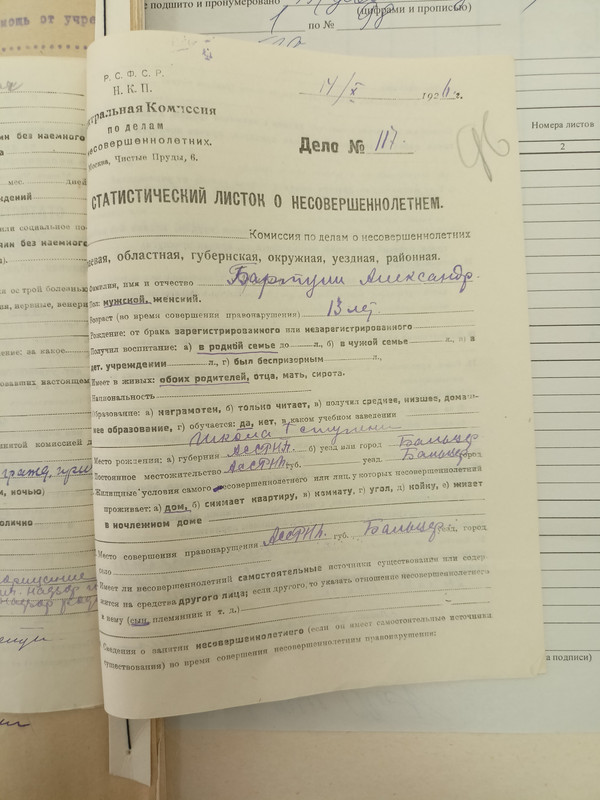 мощь от учре
е подшито и пронумеровано
(цифрами и прописью)
по №
Номера листов
2
Р. С. Ф. С. Р.
Н. К. П.
14/X 1926 г.
тральная Комиссия
по делам
несовершеннолетних.
Москва, Чистые Пруды, 6.
Дело № 117.
96
СТАТИСТИЧЕСКИЙ ЛИСТОК О НЕСОВЕРШЕННОЛЕТНЕМ.
Комиссия по делам о несовершеннолетних
раевая, областная, губернская, окружная, уездная, районная.
Фамилия, имя и отчество Бартули Александр.
Пол: мужской, женский.
Возраст (во время совершения правонарушения) 13 лет.
Рождение: от брака зарегистрированного или незарегистрированного
Получил воспитание: а) в родной семье до л., б) в чужой семье л., в) в
дет. учреждении л., г) был беспризорным л.,
Имеет в живых: обоих родителей, отца, мать, сирота.
Национальность
Образование: а) неграмотен, б) только читает, в) получил среднее, низшее, домаш-
нее образование, г) обучается: да, нет, в каком учебном заведении
Школа I ступени
Место рождения: а) губерния АССРНП. б) уезд или город Бальцер
Постоянное местожительство АССРНП. губ. уезд. Бальцер город
Жилищные условия самого несовершеннолетнего или лиц, у которых несовершеннолетний
проживает: а) дом, б) снимает квартиру, в) комнату, г) угол, д) койку, е) живет
в ночлежном доме
Место совершения правонарушения АССРНП. губ. Бальцер уезд, город
село
Имеет ли несовершеннолетний самостоятельные источники существования или содер-
жится на средства другого лица; если другого, то указать отношение несовершеннолетнего
к нему (сын, племянник и т. д.)
Сведения о занятии несовершеннолетнего (если он имеет самостоятельные источники
существования) во время совершения несовершеннолетним правонарушения:
а подписи)